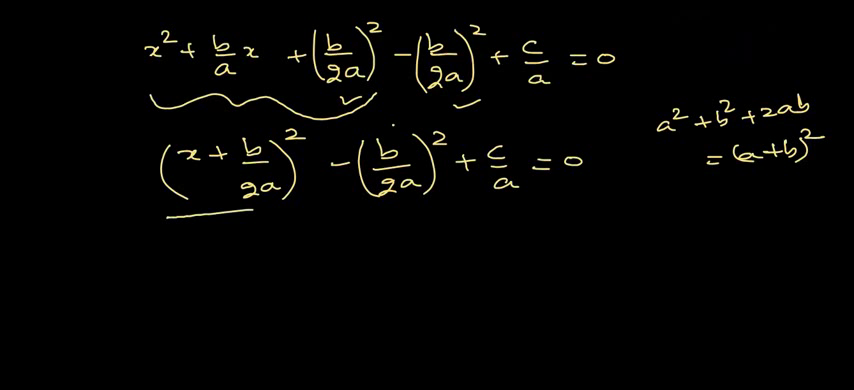 x² + b/a x + (b/2a)² − (b/2a)² + c/a = 0
(x + b/2a)² − (b/2a)² + c/a = 0
a² + b² + 2ab
= (a+b)²